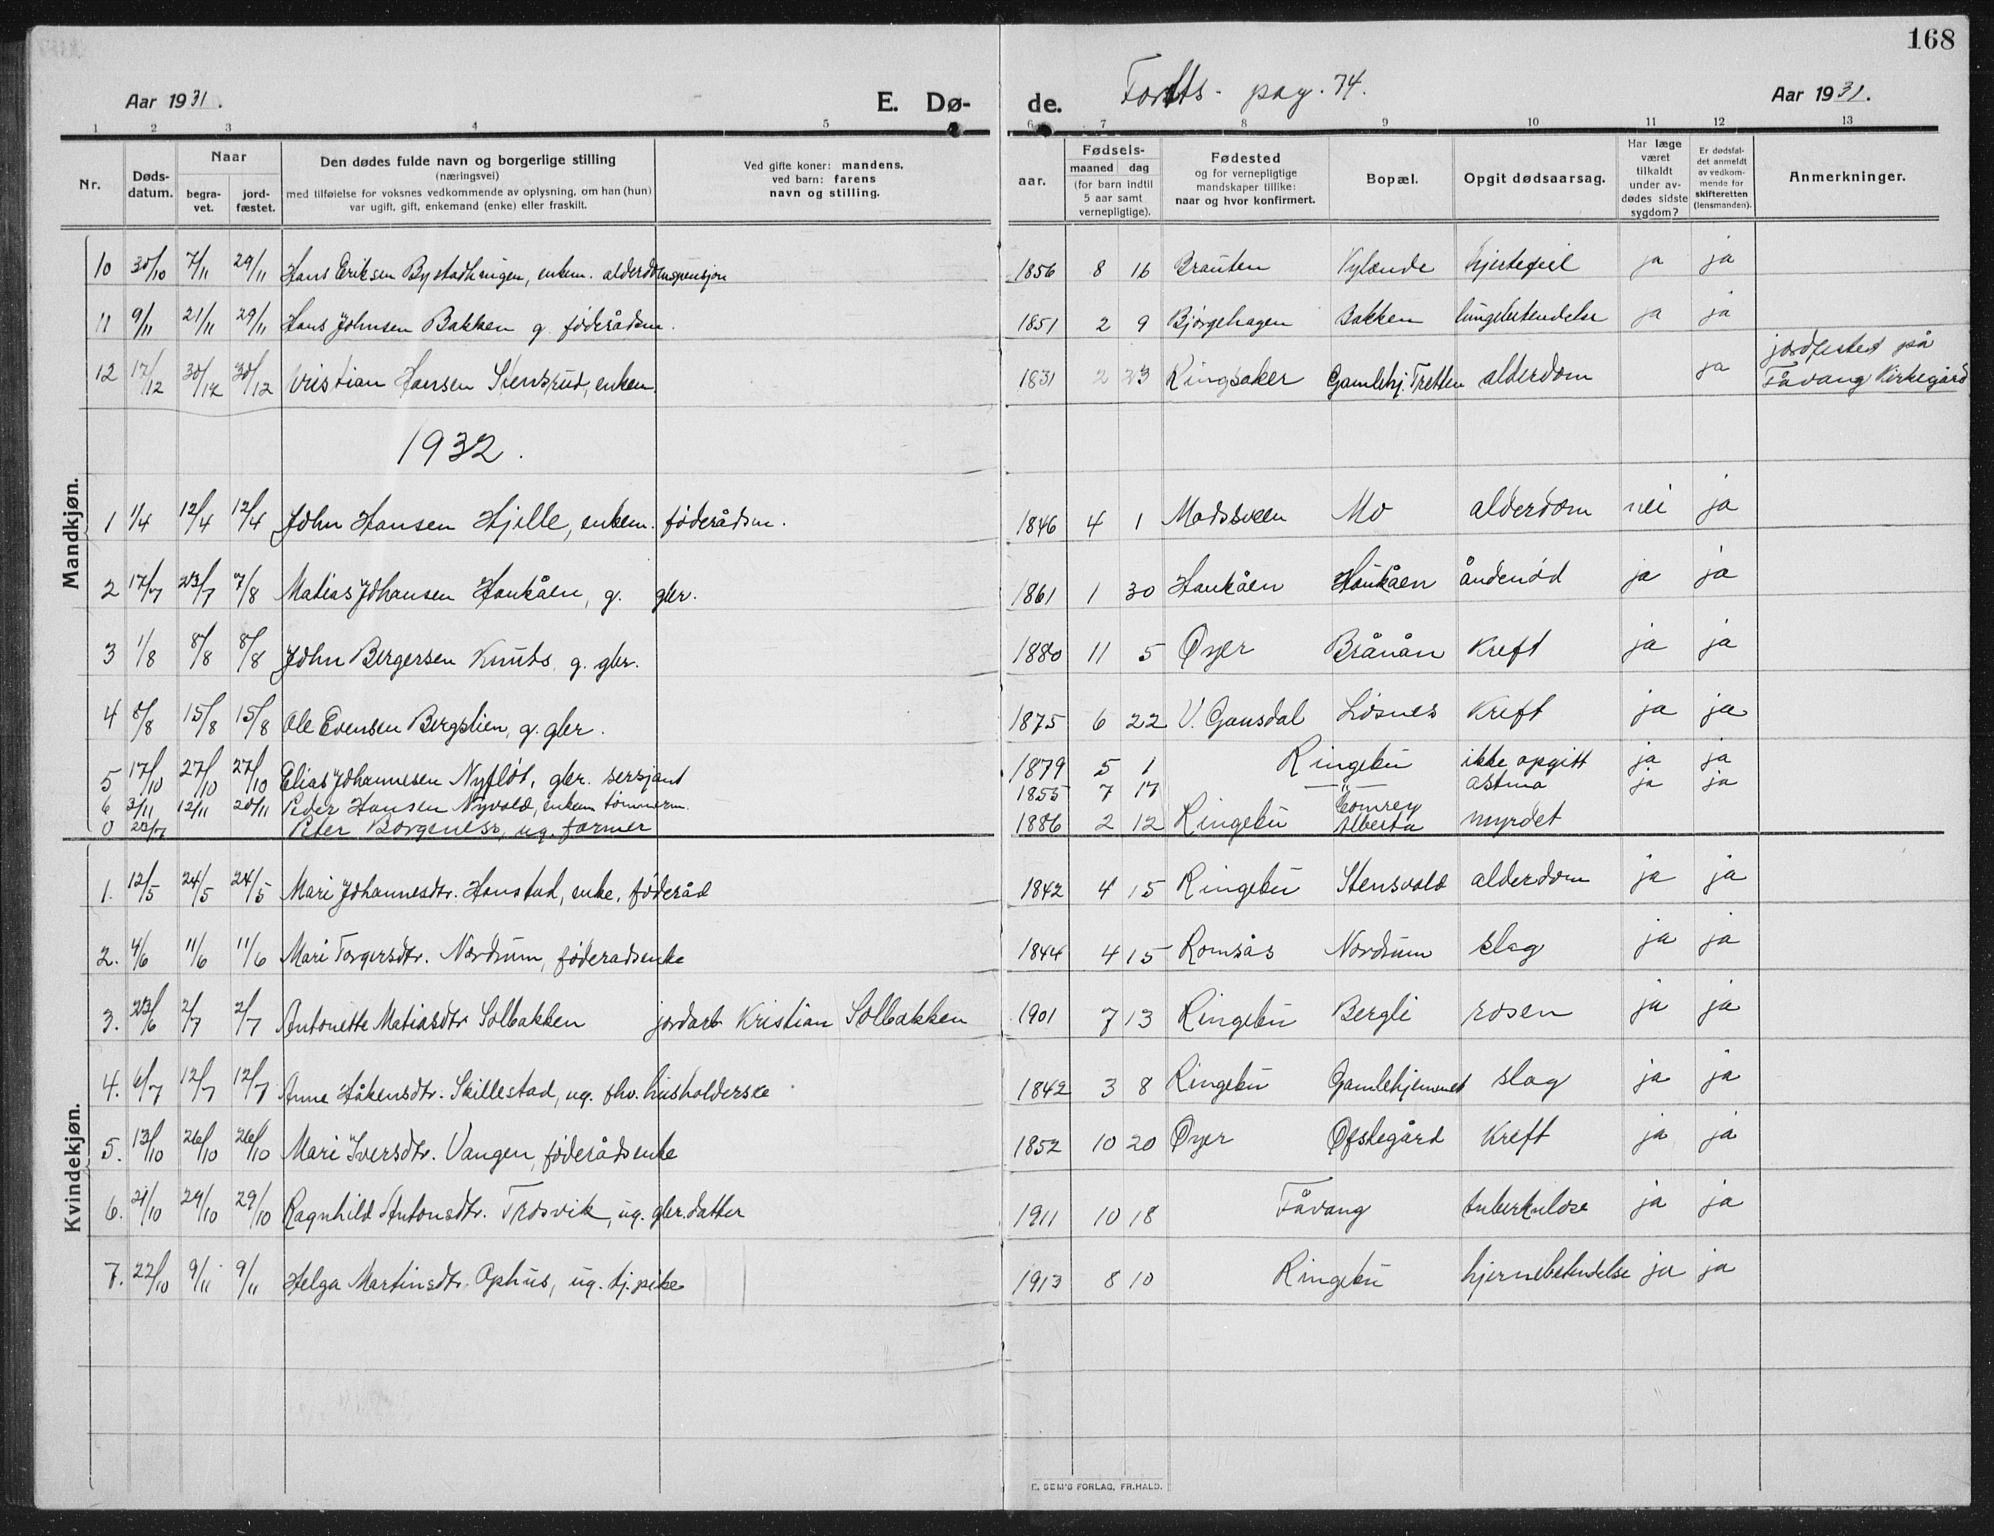 168
Aar 1931.
E. Dø-
de.
Fortts. pag. 74.
Aar 1931.
1 2 3 4 5 6 7 8 9 10 11 12 13
Nr.
Døds-
datum.
Naar
begra-
vet.
jord-
fæstet.
Den dødes fulde navn og borgerlige stilling
(næringsvei)
med tilføielse for voksnes vedkommende av oplysning, om han (hun)
var ugift, gift, enkemand (enke) eller fraskilt.
Ved gifte koner: mandens,
ved barn: farens
navn og stilling.
aar.
Fødsels-
maaned dag
(for barn indtil
5 aar samt
vernepligtige).
Fødested
og for vernepligtige
mandskaper tillike:
naar og hvor konfirmert.
Bopæl.
Opgit dødsaarsag.
Har læge
været
tilkaldt
under av-
dødes sidste
sygdom?
Er dødsfal-
det anmeldt
av vedkom-
mende for
skifteretten
(lensmanden).
Anmerkninger.
Mandkjøn.
10 30/10 7/11 29/11 Hans Eriksen Bystadhaugen, enkem. alderdomspensjon 1856 8 16 Brauten Nylænde hjertefeil ja ja
11 9/11 21/11 29/11 Hans Johnsen Bakken g. føderådsm. 1851 2 9 Bjørgehagen Bakken lungebetendelse ja ja
12 17/12 30/12 30/12 Kristian Hansen Stensrud, enkem. 1831 2 23 Ringsaker Gamlehj. Tretten alderdom ja jordfestet på
Fåvang Kirkegård
1932.
1 1/4 12/4 12/4 John Hansen Hjelle, enkem. føderådsm. 1846 4 1 Madssveen Mo alderdom nei ja
2 17/7 23/7 7/8 Matias Johansen Haukåen, g. gbr. 1861 1 30 Haukåen Haukåen åndenød ja ja
3 1/8 8/8 8/8 John Bergersen Knuts, g. gbr. 1880 11 5 Øyer Brånån kreft ja ja
4 8/8 15/8 15/8 Ole Evensen Bergslien, g. gbr. 1875 6 22 V. Gausdal Losnes kreft ja ja
5 17/10 27/10 27/10 Elias Johannesen Nyfløt, gbr. sersjant 1879 5 1 Ringebu ikke opgitt ja ja
6 3/11 12/11 20/11 Peder Hansen Nyvold, enkem tømmerm. 1855 7 17 — " — astma ja ja
0 23/7 Peter Borgeness, ug. farmer 1886 2 12 Ringebu Comrey
Alberta myrdet
Kvindekjøn.
1. 12/5 24/5 24/5 Mari Johannesdtr. Hanstad, enke, føderåd 1842 4 15 Ringebu Stensvold alderdom ja ja
2. 4/6 11/6 11/6 Mari Torgersdtr. Nordrum, føderadsenke 1844 4 15 Romsås Nordrum slag ja ja
3. 23/6 2/7 2/7 Antonette Matiasdtr Solbakken jordarb Kristian Solbakken 1901 7 13 Ringebu Bergli rosen ja ja
4. 6/7 12/7 12/7 Anne Håkensdtr. Skillestad, ug. fhv. husholderske 1842 3 8 Ringebu Gamlehjemmet slag ja ja
5. 13/10 26/10 26/10 Mari Iversdtr. Vangen, føderådsenke 1852 10 20 Øyer Øfstegård kreft ja ja
6. 21/10 29/10 29/10 Ragnhild Antonsdtr. Trosvik, ug. gbr.datter 1911 10 18 Fåvang tuberkulose ja ja
7. 22/10 9/11 9/11 Helga Martinsdtr. Ophus, ug. tj.pike 1913 8 10 Ringebu hjernebetendelse ja ja
E. SEM'S FORLAG, FR.HALD.